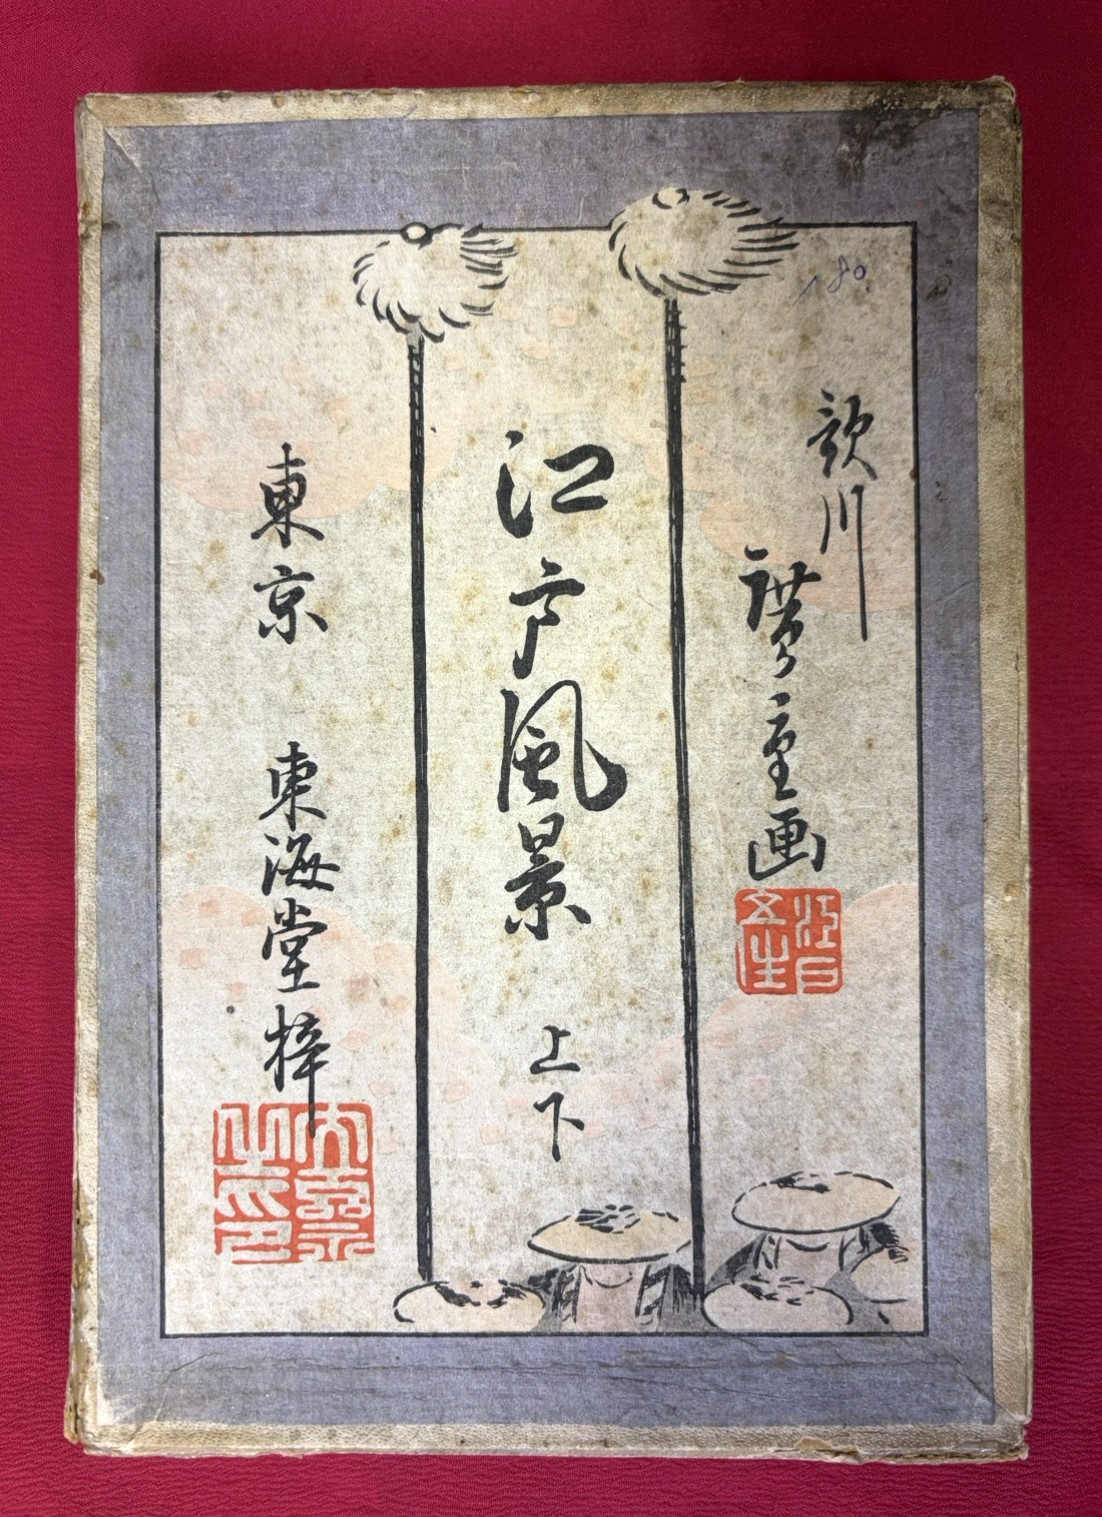 歌川
廣重画
江戸風景 上下
東京 東海堂梓
180